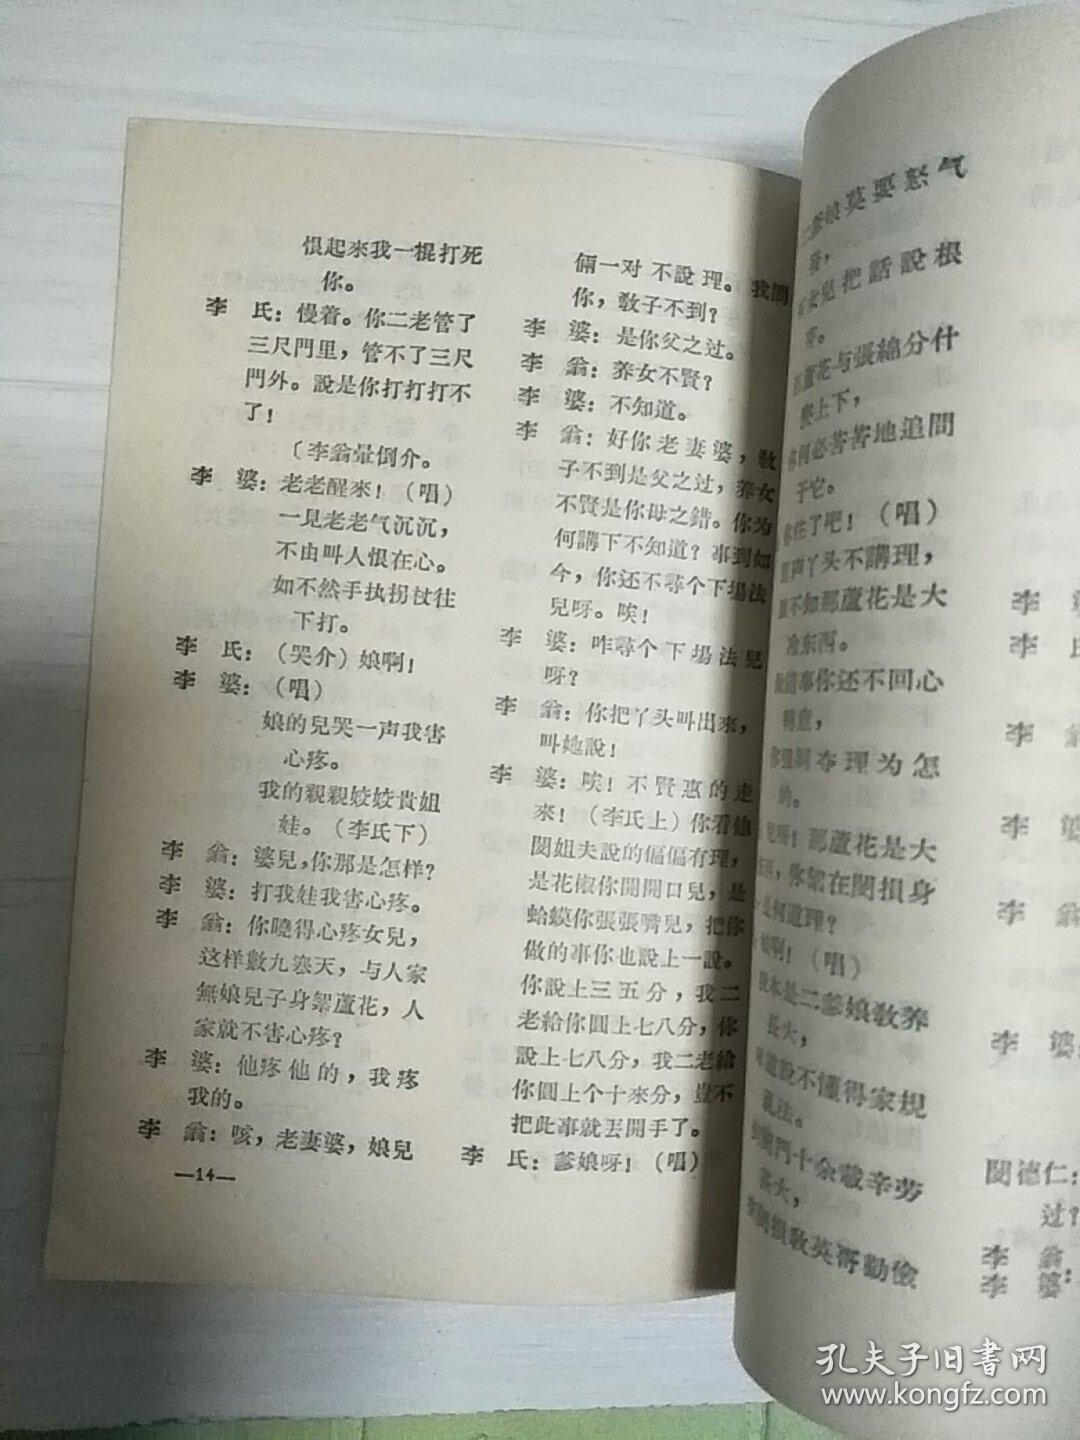 恨起來我一棍打死
你。
李 氏：慢着。你二老管了
三尺門里，管不了三尺
門外。說是你打打打不
了！
〔李翁暈倒介。
李 婆：老老醒來！（唱）
一見老老气沉沉，
不由叫人恨在心。
如不然手执拐杖往
下打。
李 氏：（哭介）娘啊！
李 婆：（唱）
娘的兒哭一声我害
心疼。
我的親親姣姣貴姐
娃。（李氏下）
李 翁：婆兒，你那是怎样？
李 婆：打我娃我害心疼。
李 翁：你曉得心疼女兒，
这样數九寒天，与人家
無娘兒子身絮蘆花，人
家就不害心疼？
李 婆：他疼他的，我疼
我的。
李 翁：咳，老妻婆，娘兒
—14—
倆一对不說理。我問
你，敎子不到？
李 婆：是你父之过。
李 翁：养女不賢？
李 婆：不知道。
李 翁：好你老妻婆，敎
子不到是父之过，养女
不賢是你母之錯。你为
何講下不知道？事到如
今，你还不尋个下場法
兒呀。唉！
李 婆：咋尋个下場法兒
呀？
李 翁：你把丫头叫出來，
叫她說！
李 婆：唉！不賢惠的走
來！（李氏上）你看他
閔姐夫說的偏偏有理，
是花椒你開開口兒，是
蛤蟆你張張嘴兒，把你
做的事你也說上一說。
你說上三五分，我二
老給你圓上七八分，你
說上七八分，我二老給
你圓上个十來分，豈不
把此事就丟開手了。
李 氏：爹娘呀！（唱）
二爹娘莫要怒气
發，
女兒把話說根
蘆花与張綿分什
麽上下，
你何必苦苦地追問
于它。
你住了吧！（唱）
罵声丫头不講理，
豈不知那蘆花是大
冷东西。
做錯事你还不回心
轉意，
你强詞夺理为怎
的。
兒呀！那蘆花是大
你絮在閔損身
是何道理？
娘啊！（唱）
我本是二爹娘敎养
長大，
誰說不懂得家規
礼法。
門十余載辛劳
閔損敎英哥勤儉
李
李 氏
李
李
李
李 婆：
閔德仁：
过？
李 翁
李 婆：
孔夫子旧書网
www.kongfz.com